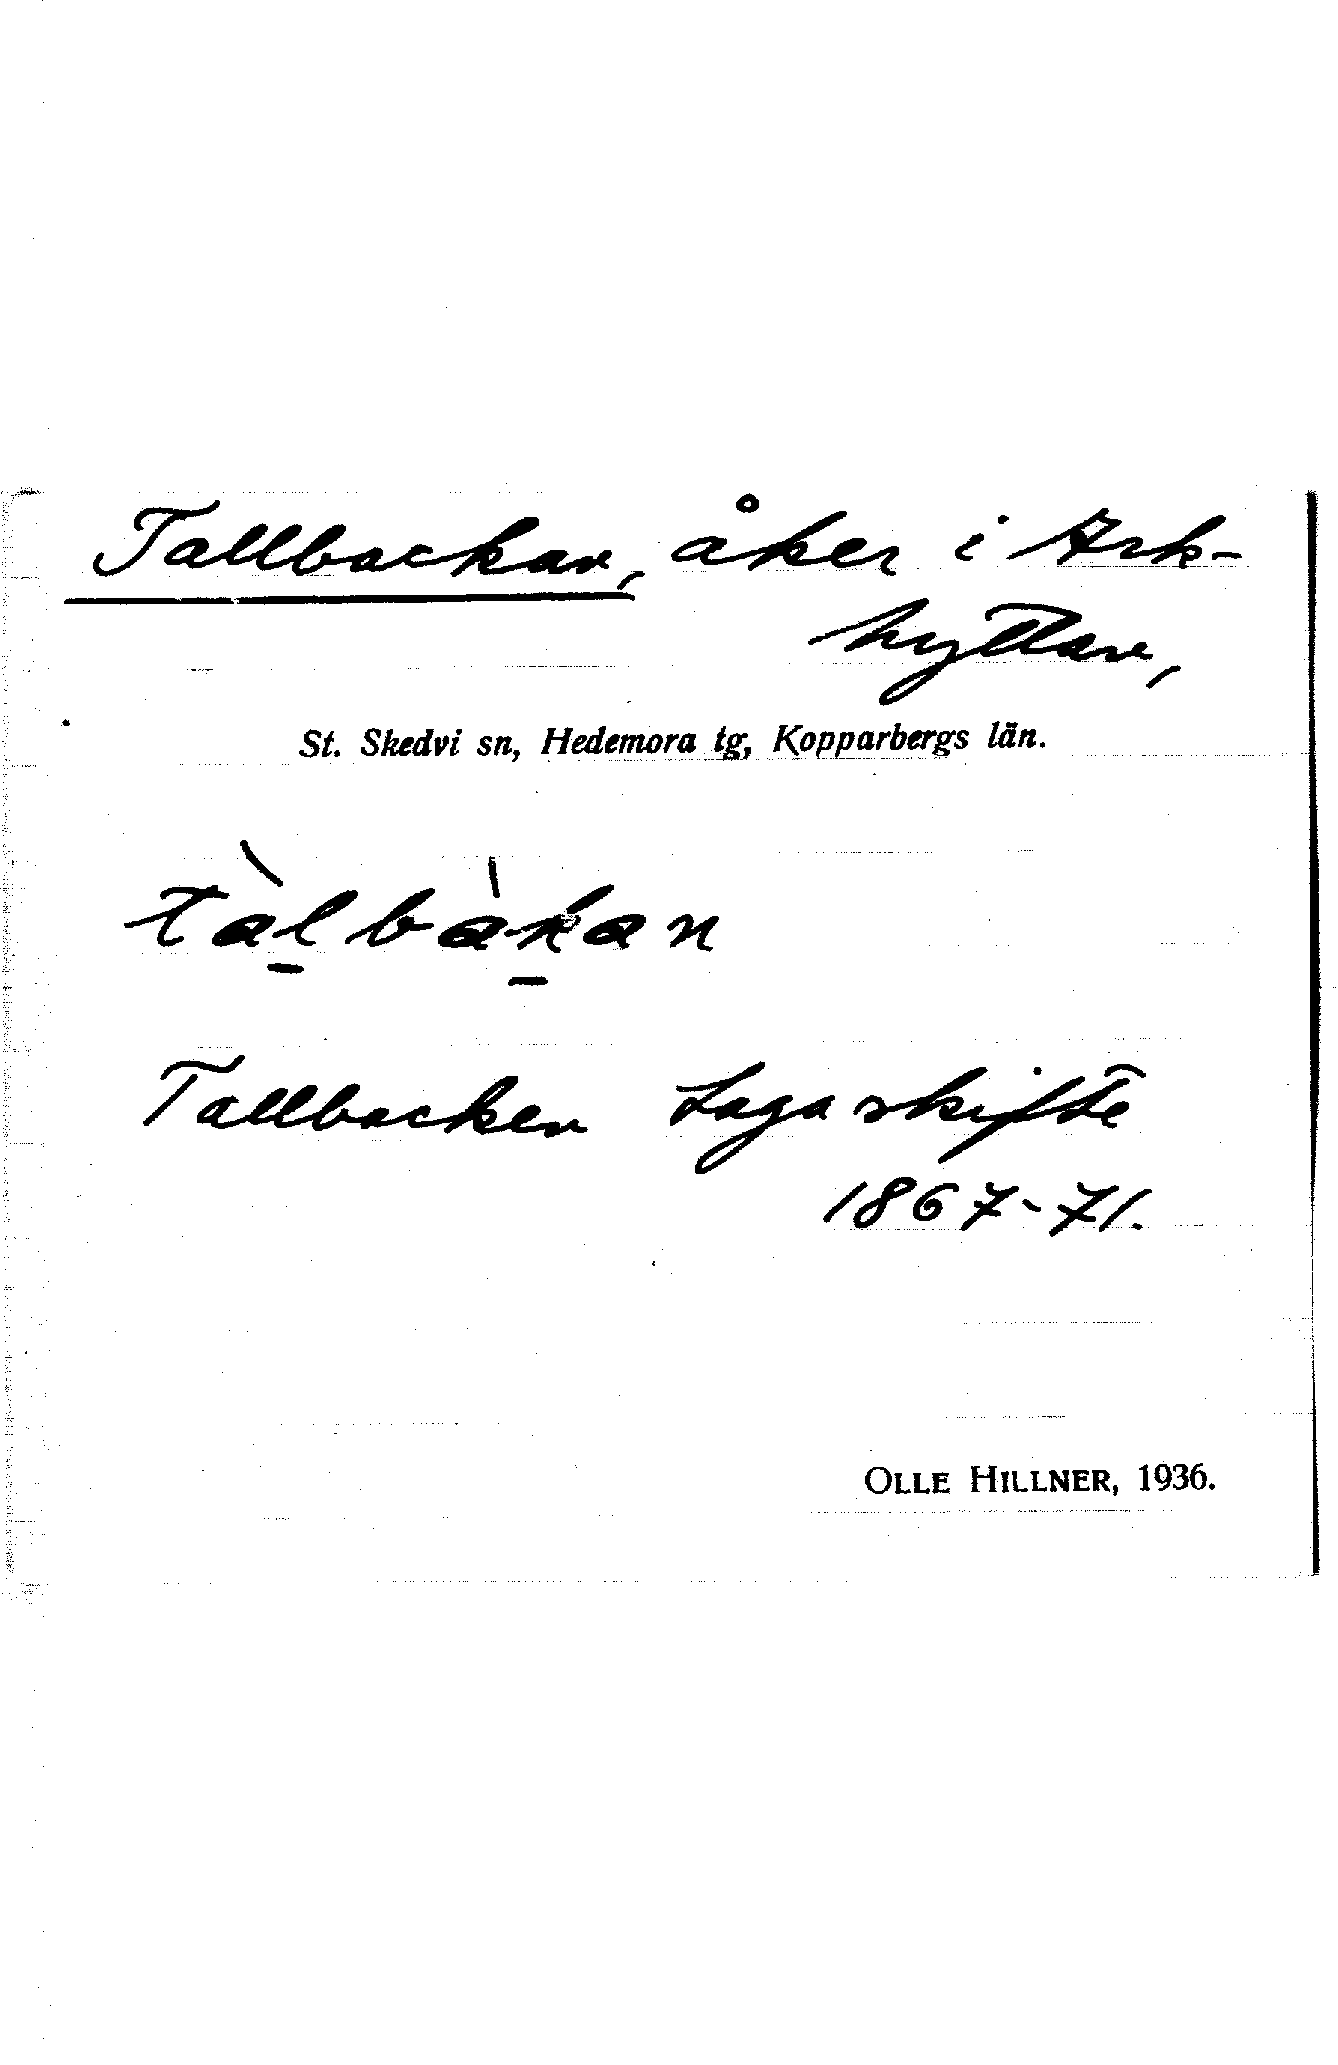 Tallbackan, åker i Ark-
hyttan,
St. Skedvi sn, Hedemora tg, Kopparbergs län.
tàl̠bàk̠an
Tallbacken Laga skifte
1867-71.
OLLE HILLNER, 1936.